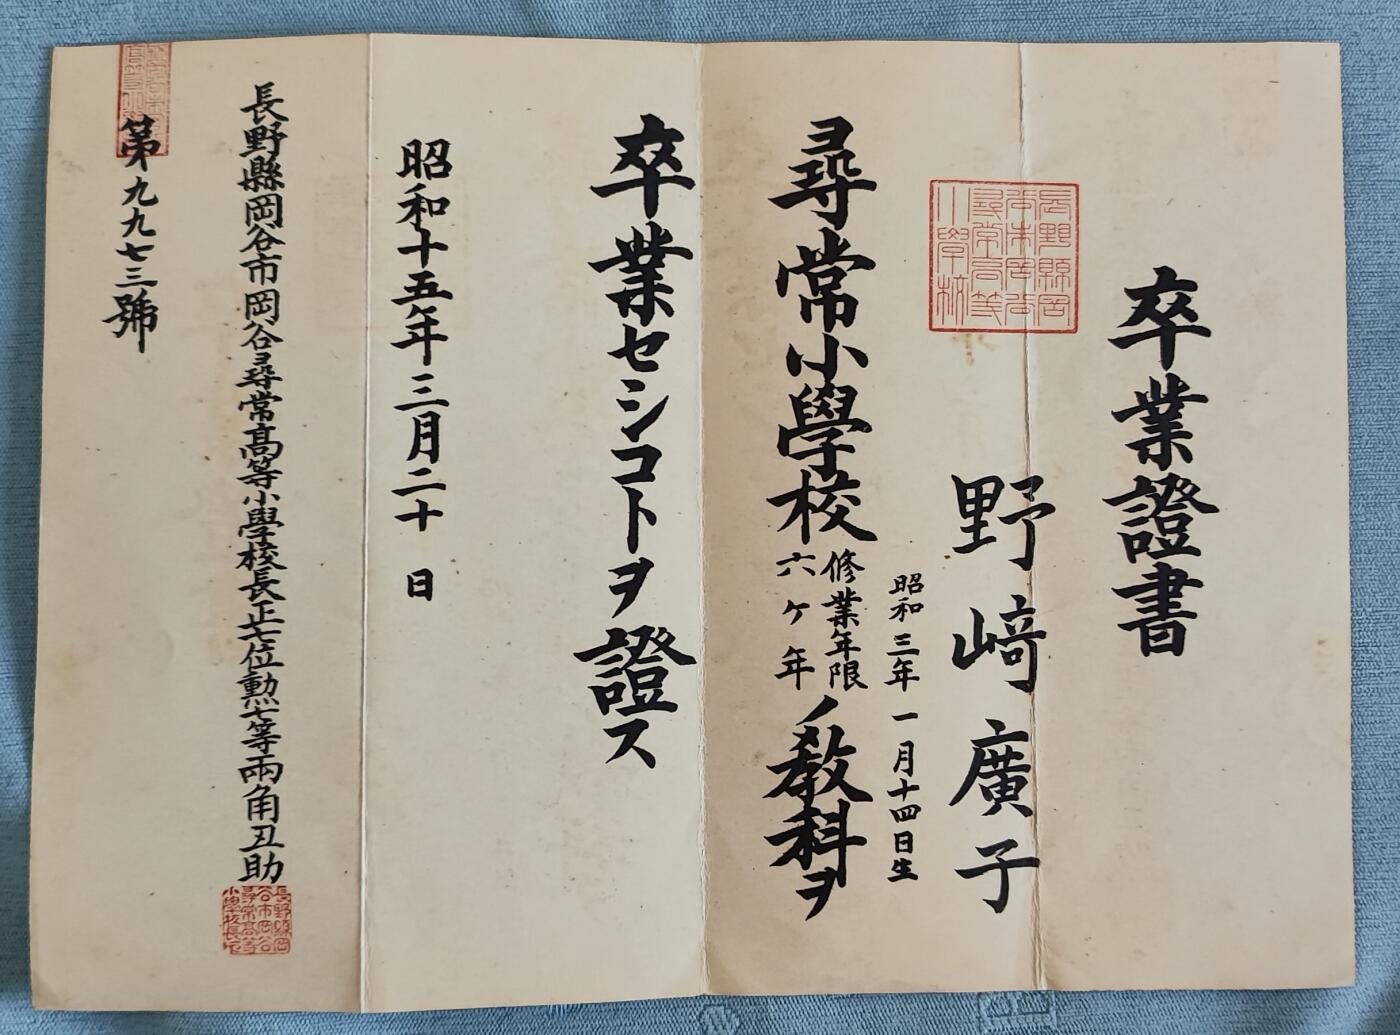 卒業證書
長野縣岡谷市岡谷尋常高等小學校
野﨑廣子
昭和三年一月十四日生
尋常小學校修業年限六ヶ年ノ教科ヲ
卒業セシコトヲ證ス
昭和十五年三月二十日
長野縣岡谷市岡谷尋常高等小學校長正七位勲七等兩角丑助
長野縣岡谷市岡谷尋常高等小學校長之印
第九九七三號